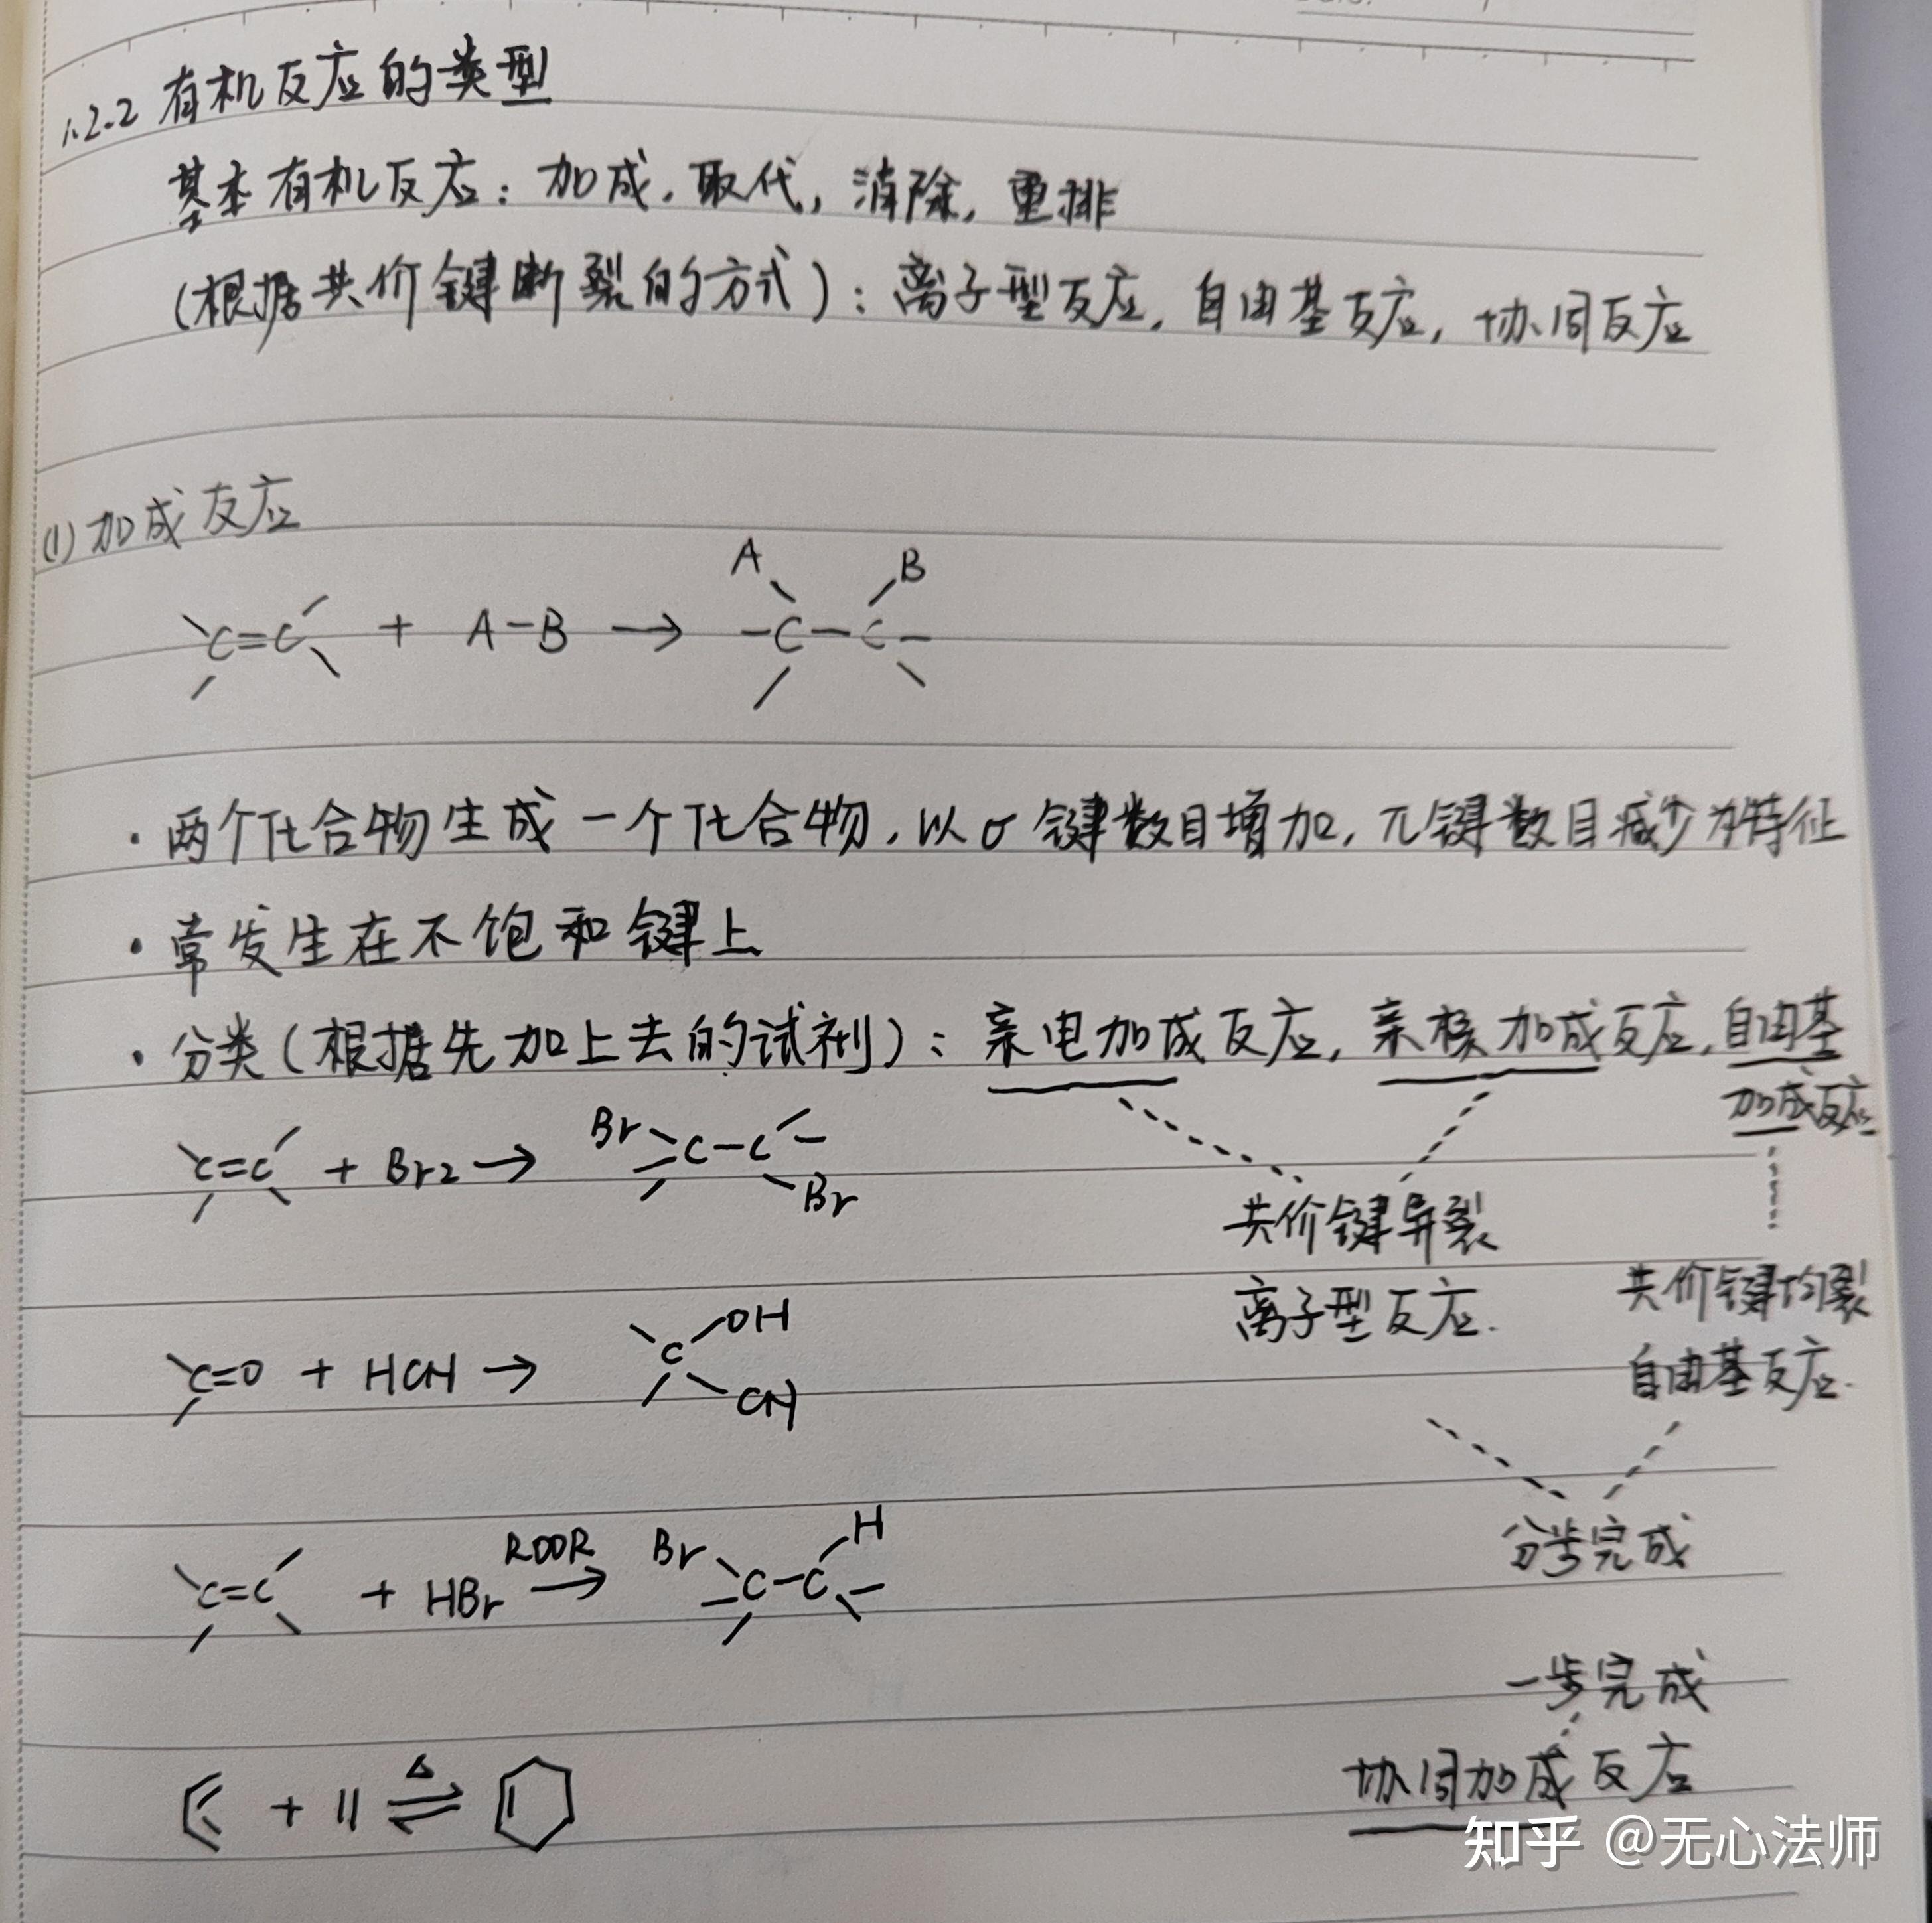 1.2.2 有机反应的类型
基本有机反应：加成，取代，消除，重排
(根据共价键断裂的方式)：离子型反应，自由基反应，协同反应
(1) 加成反应
A B
C=C + A-B → -C-C-
·两个化合物生成一个化合物，以σ键数目增加，π键数目减少为特征
·常发生在不饱和键上
·分类(根据先加上去的试剂)：亲电加成反应，亲核加成反应，自由基
加成反应
C=C + Br2 → Br C-C Br
共价键异裂
离子型反应.
共价键均裂
自由基反应.
C=O + HCN → C OH CN
分步完成
C=C + HBr ROOR → Br C-C H
一步完成
+ Δ ⇌
协同加成反应
知乎 @无心法师